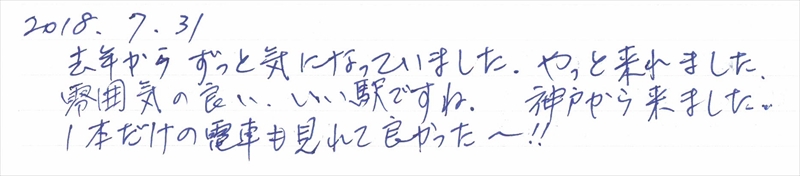 2018. 7. 31
去年からずっと気になっていました. やっと来れました.
雰囲気の良い、いい駅ですね. 神戸から来ました..
1本だけの電車も見れて良かった〜!!